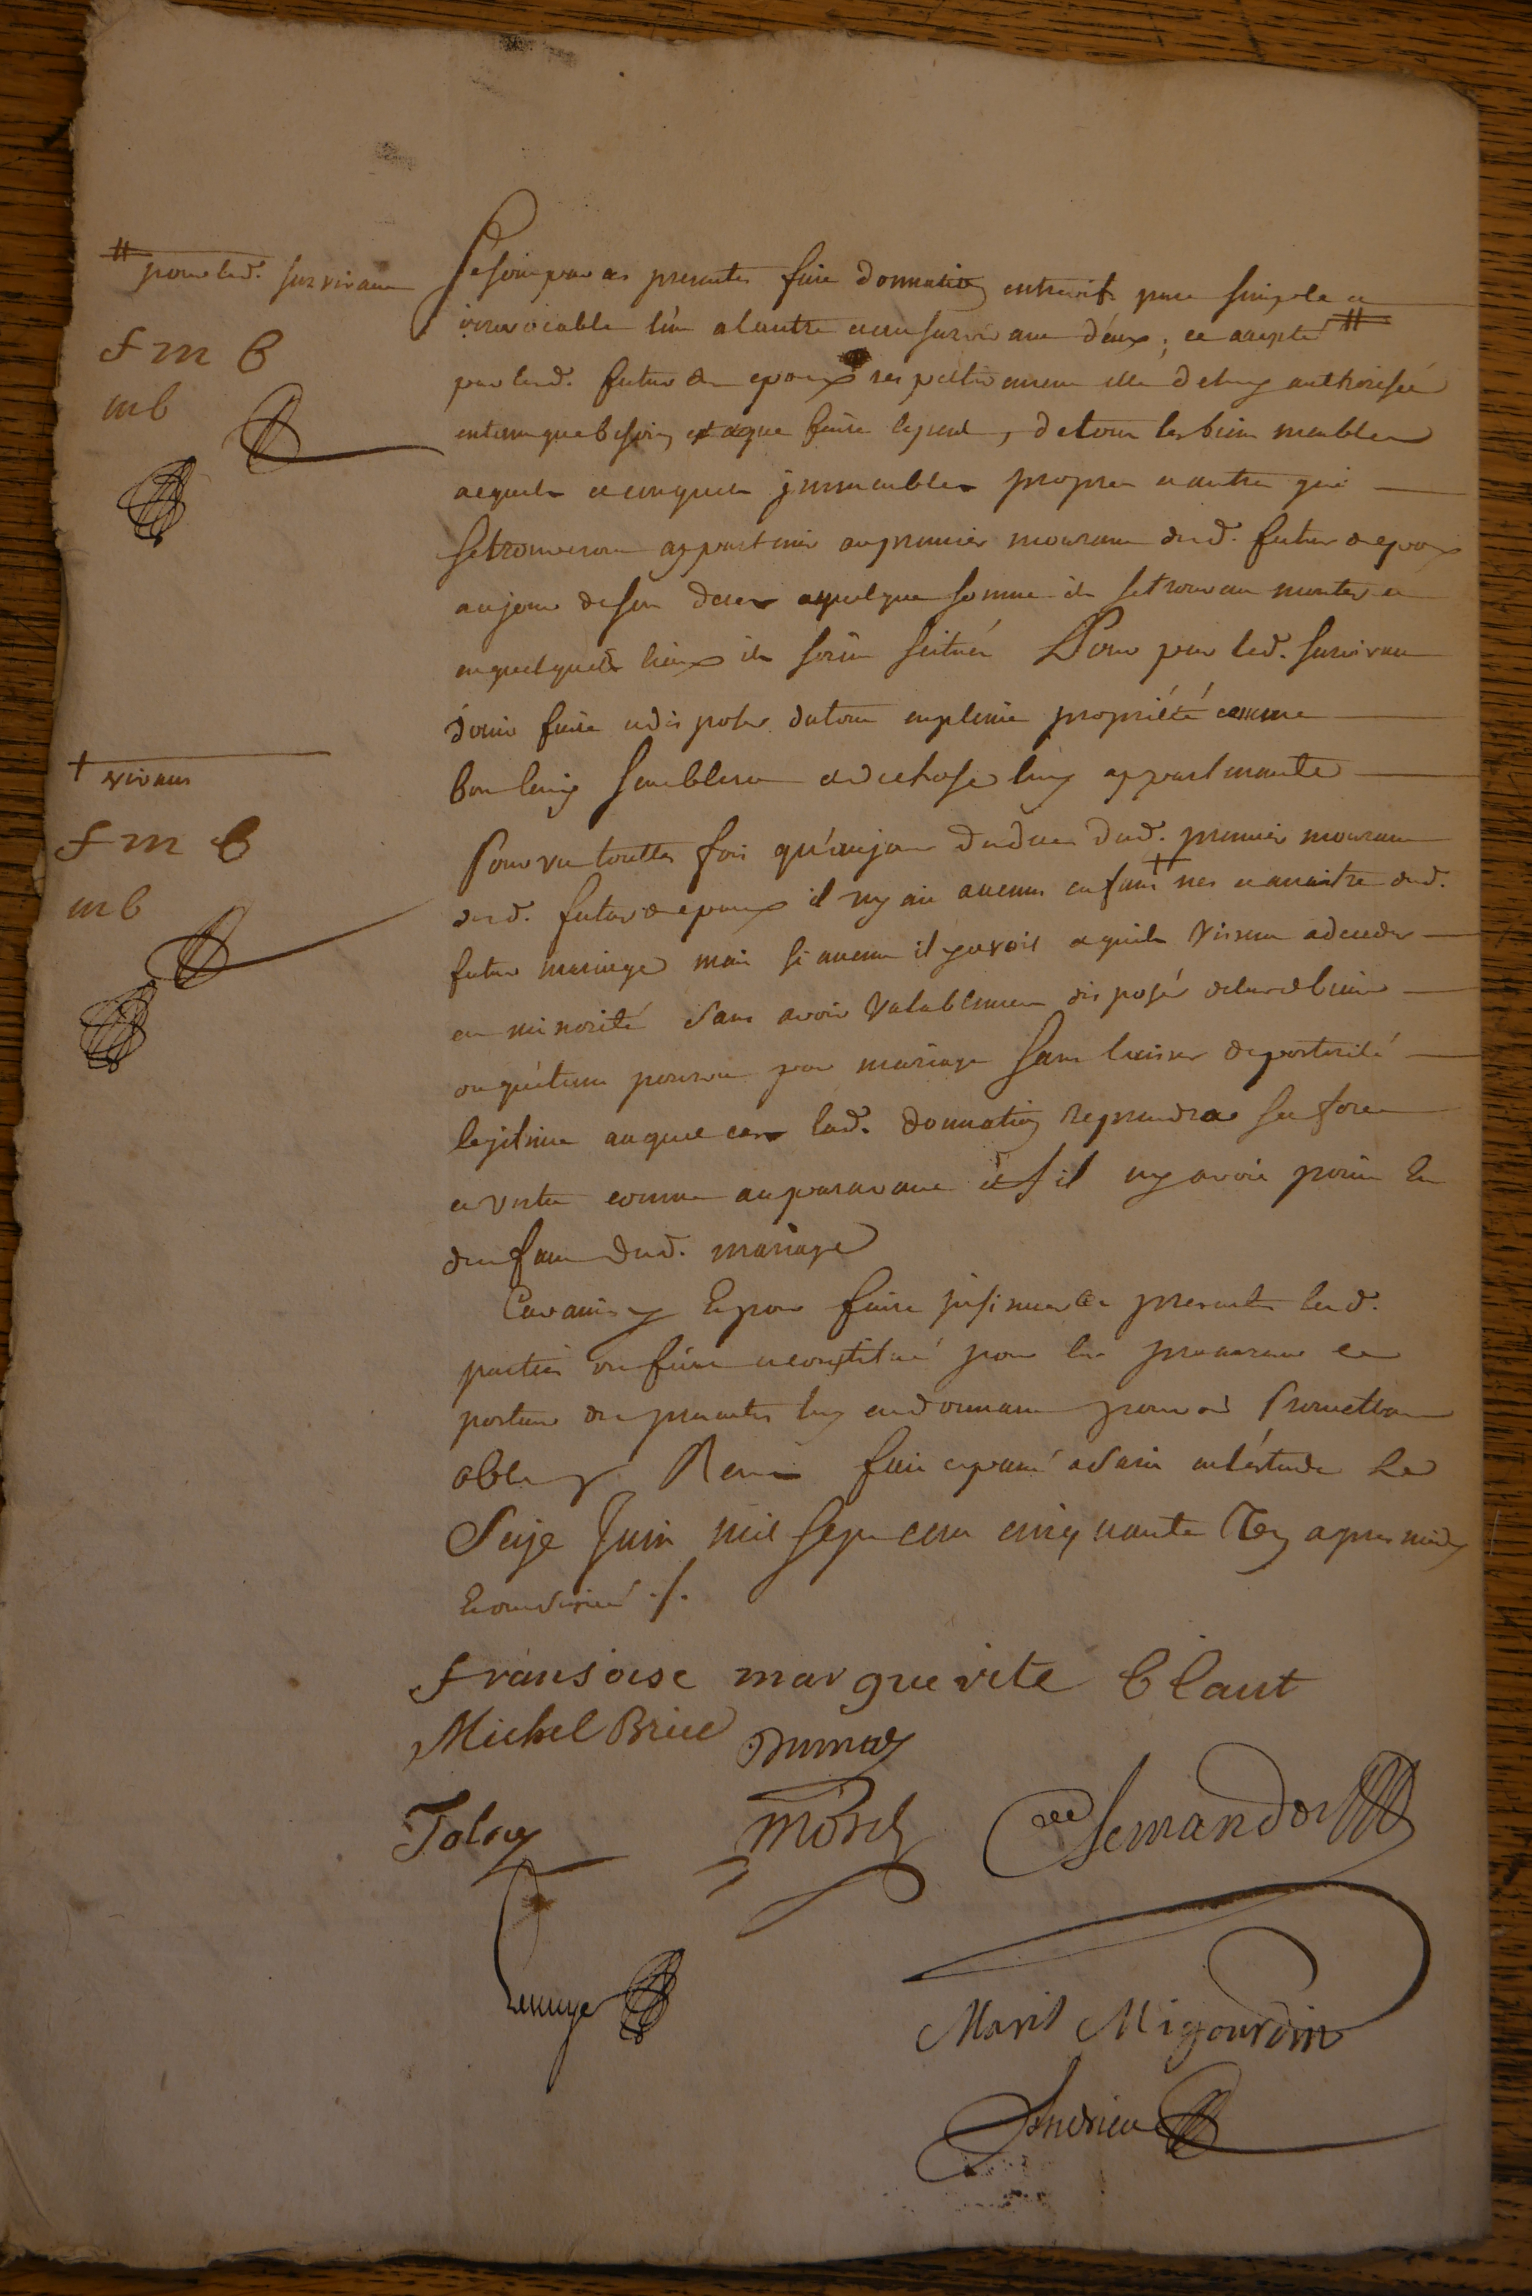 # pour led. survivant
f m b
mb
Se sont par ces presentes fait donnation entrevifs pure simple et
irrevocable l'un a lautre et au survivant d'eux, ce accepté #
par lesd. futurs epoux respectivement elle deluy authorisée
entant que besoin et a que faire se peut, de tous les biens meubles
acquets et conquets immeubles propres et autres qui
se trouveront appartenir au premier mourant desd. futurs epoux
au jour de son deces a quelque somme ils se trouvent monter et
en quelques lieux ils soient scitués Pour par led. survivant
jouir faire et disposer du tout en pleine propriété comme
bon luy semblera et de chose luy appartenante
Pourvu touttes fois qu'au jour du deces dud. premier mourant
+ vivans
f m b
mb
desd. futurs epoux il ny ait aucuns enfans + nes et a naistre dud.
futur mariage mais si aucuns il y avoit et quils vinssent a deceder
en minorité sans avoir valablement disposé de leurs biens
ou qu'etant pourvu par mariage sans laisser de posterité
legitime auquel cas lad. donnation reprendra sa force
et vertu comme auparavant et s'il ny avoit point eu
denfans dud. mariage
Car ainsy Et pour faire insinuer ces presentes lesd.
parties ont fait et constitué pour leur procureur le
porteur des presentes luy en donnant pouvoir Promettant
oblig Renon fait et passé a Paris en l'etude Le
Seize Juin mil sept cent cinquante apres midy
Et ont signé ./.
fransoise marguerite blaut
Michel Brice Dumay
Morel
Marie Migourdin
Andrieu